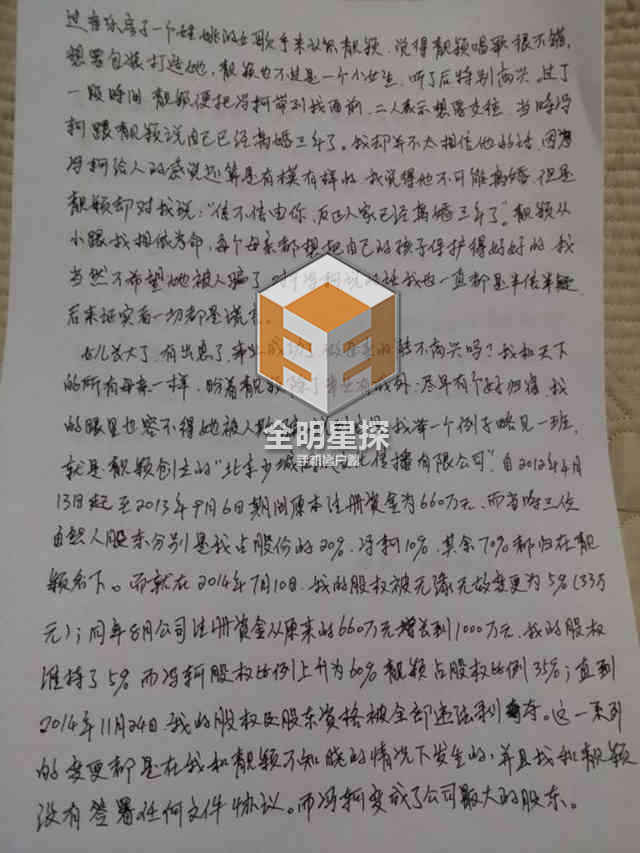 过音乐房了一个姓姚的女歌手来认识靓颖，说得靓颖唱歌很不错，
想要包装打造她，靓颖也不过是一个小女生，听了后特别高兴。过了
一段时间 靓颖便把冯柯带到我面前，二人表示想要交往，当时冯
柯跟靓颖说自己已经离婚三年了。我却并不太相信他的话，因为
冯柯给人的感觉还算是有模有样的，我觉得他不可能离婚，但是
靓颖却对我说："信不信由你，反正人家已经离婚三年了"。靓颖从
小跟我相依为命，每个母亲都想把自己的孩子保护得好好的，我
当然不希望她被人骗了，对于冯柯说的话我也一直都是半信半疑
后来证实着一切都是谎言。
女儿长大了，有出息了，事业成功了，做母亲的能不高兴吗？我和天下
的所有母亲一样，盼着靓颖除了事业有成外；尽早有个好归宿，我
的眼里也容不得她被人欺 我举一个例子略见一班，
就是靓颖创立的"北京少城 文化传播有限公司"，自2012年4月
13日起至2013年9月6日期间原本注册资金为660万元，而当时三位
自然人股东分别是我占股份的20%，冯柯10%，其余70%都归在靓
颖名下。而就在2014年7月10日，我的股权被无缘无故变更为5%（33万
元）；同年8月公司注册资金从原来的660万元增长到1000万元，我的股权
维持了5%而冯轲股权比例上升为60%靓颖占股权比例35%；直到
2014年11月24日，我的股权及股东资格被全部违法剥夺。这一系列
的变更都是在我和靓颖不知晓的情况下发生的，并且我和靓颖
没有签署任何文件协议。而冯轲变成了公司最大的股东。
全明星探
手机客户端